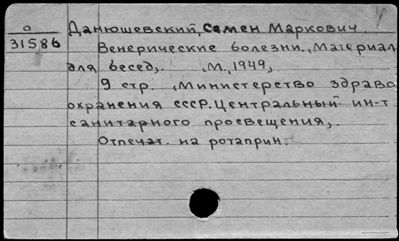 о Данюшевский, Семен Маркович.
31586 Венерические болезни. Материал
для бесед. М., 1949,
9 стр. (Министерство здраво
охранения СССР. Центральный ин-т
санитарного просвещения,.
Отпечат. на ротаприн.